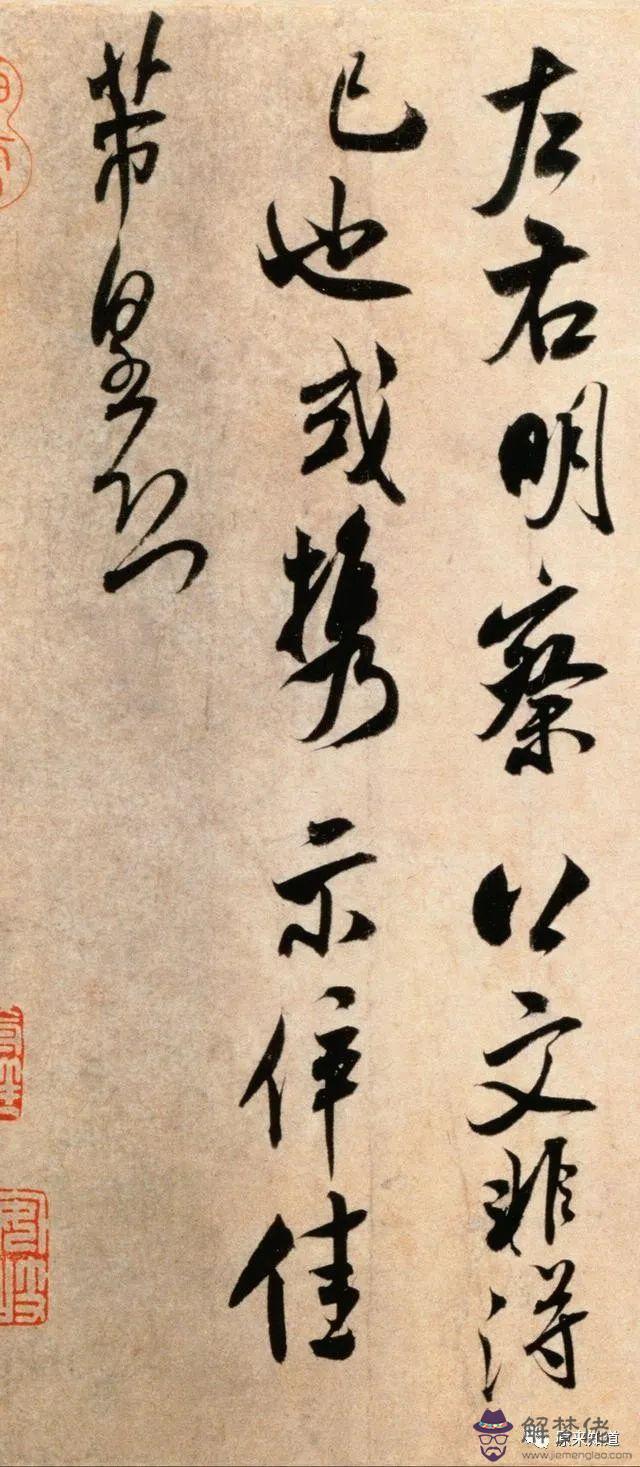 左右明察公文非得
已也或携示倅佳
芾皇恐
解梦佬
原来知道
www.jiemenglao.com